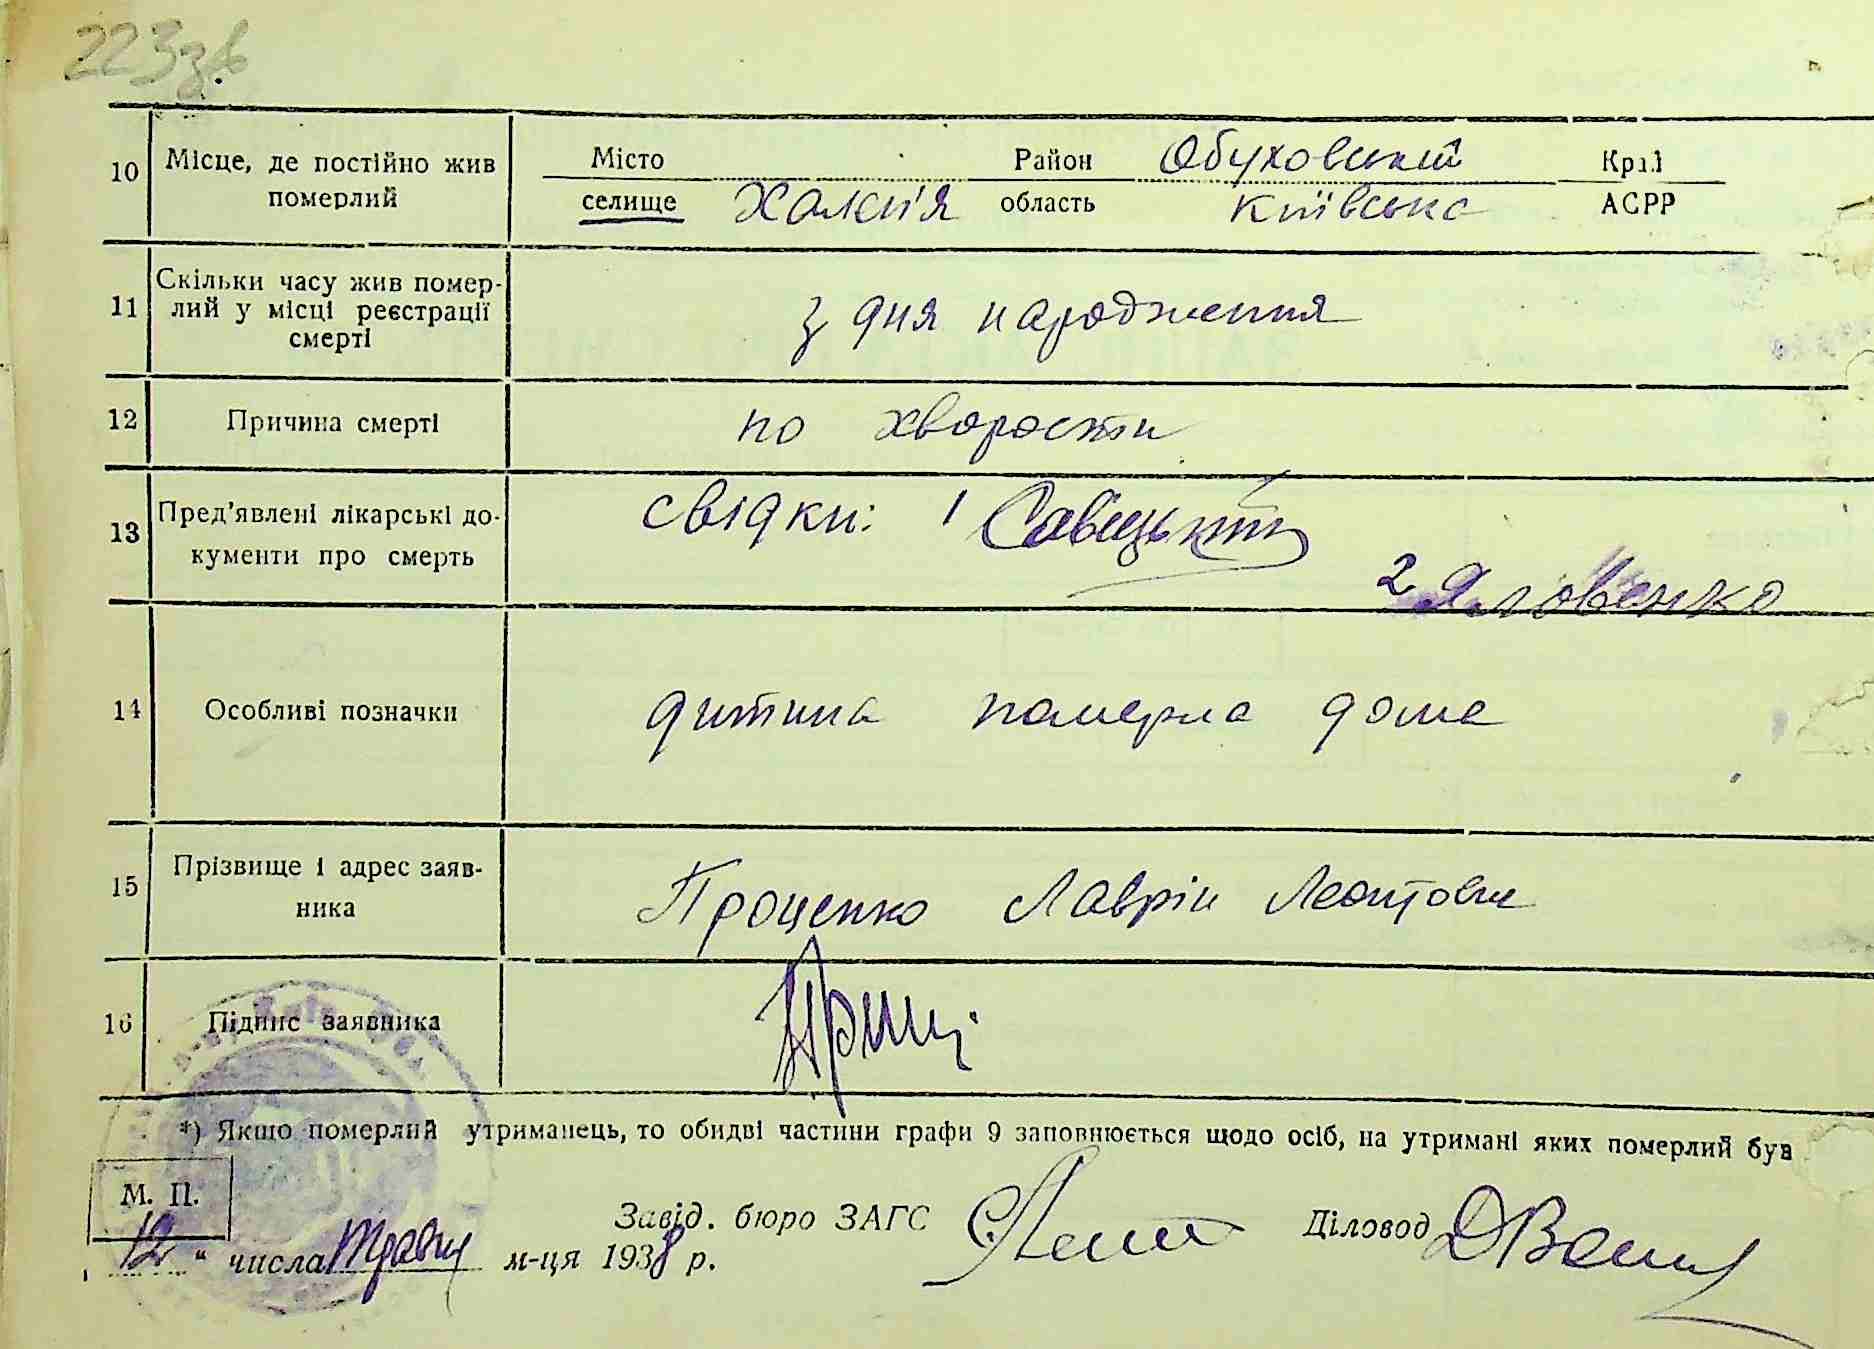 223зв.
10 Місце, де постійно жив померлий Місто Район Обуховський Край
селище Халеп'я область київська АСРР
11 Скільки часу жив помер-
лий у місці реєстрації
смерті з дня народження
12 Причина смерті по хворости
13 Пред'явлені лікарські до-
кументи про смерть свідки: 1 Савіцький
2 Яловенко
14 Особливі позначки дитина померла доме
15 Прізвище і адрес заяв-
ника Проценко Лаврін Леонтович
16 Підпис заявника
*) Якщо померлий утриманець, то обидві частини графи 9 заповнюється щодо осіб, на утримані яких померлий був
М. П.
Завід. бюро ЗАГС Діловод
12 " числа травня м-ця 1938 р.